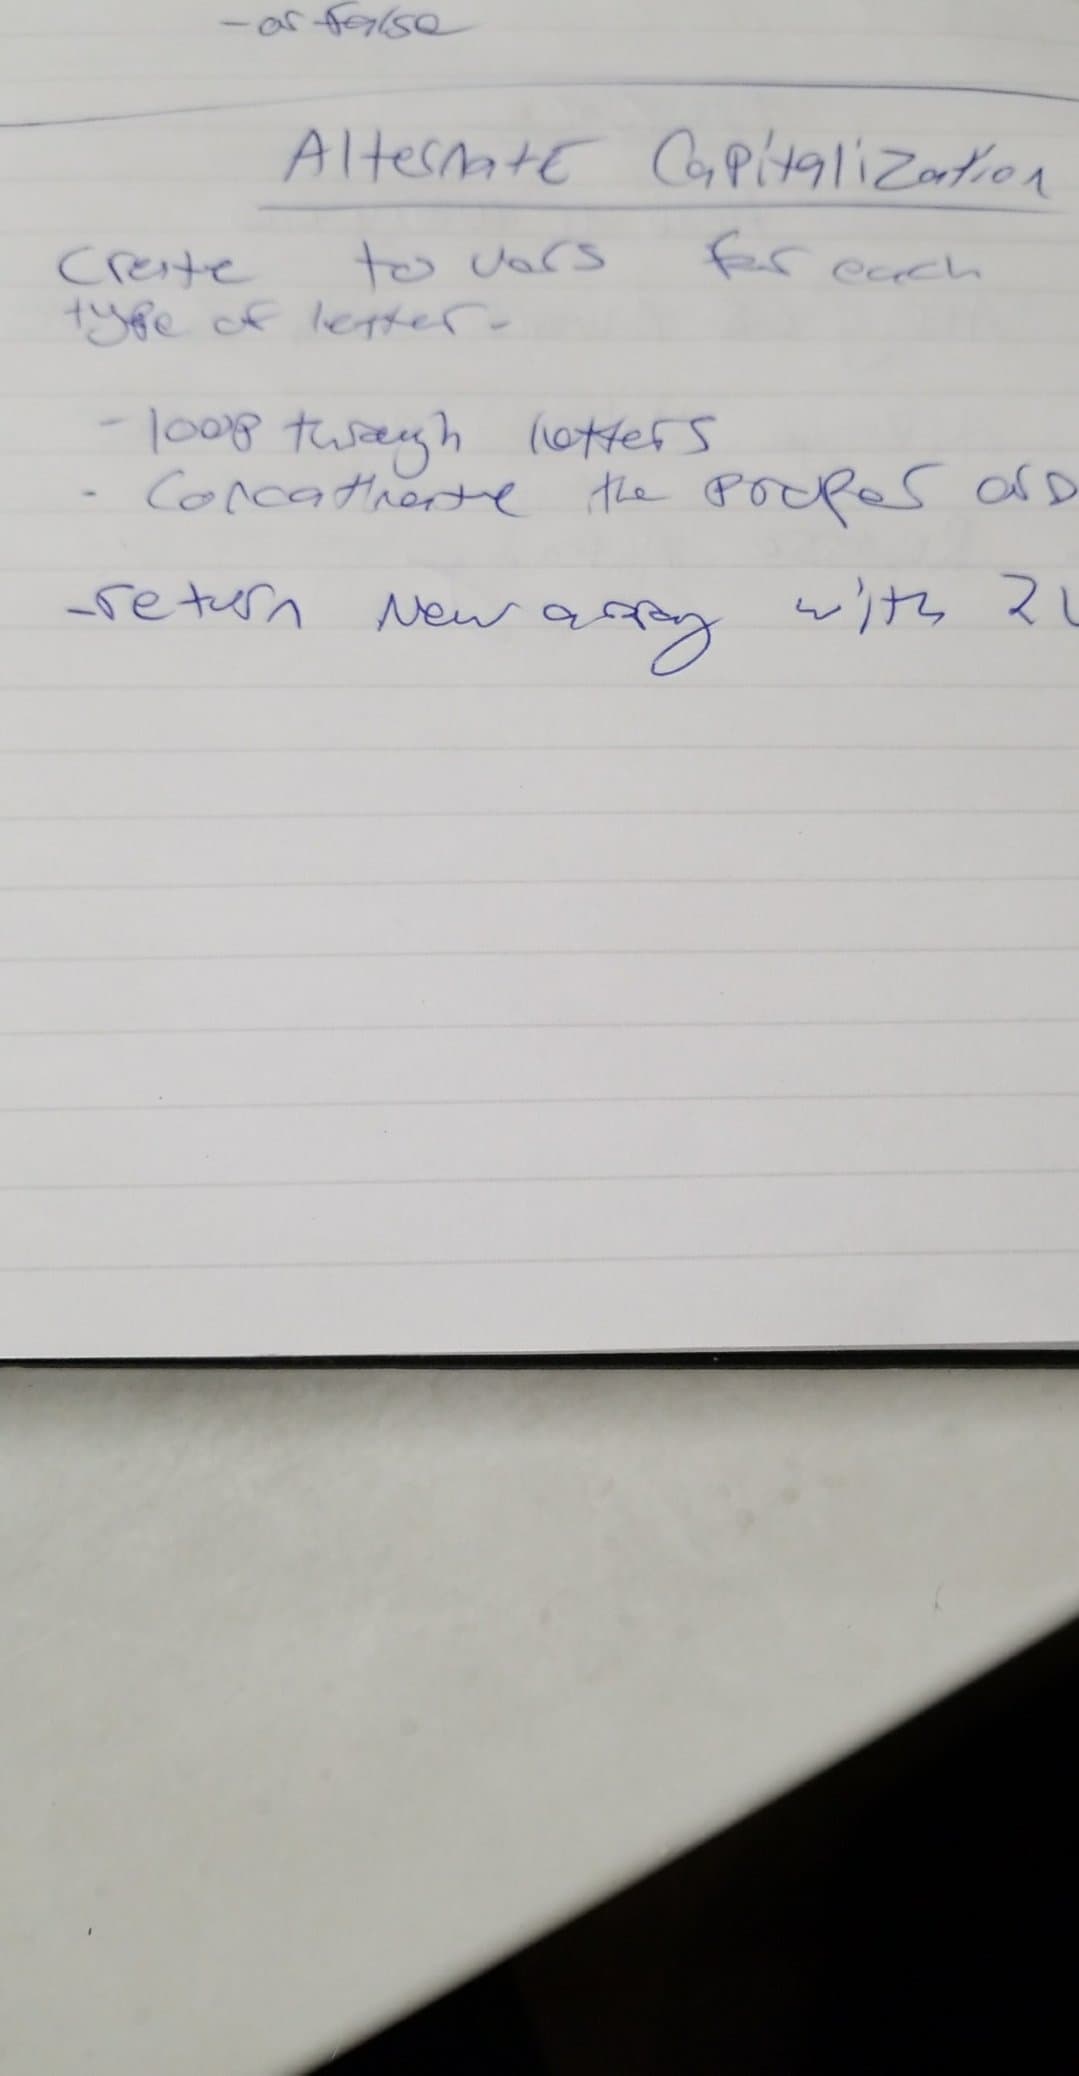 - or false
Alternate Capitalization
Create to vars for each
type of letter -
- loop through letters
- the proper
- return New array with 2